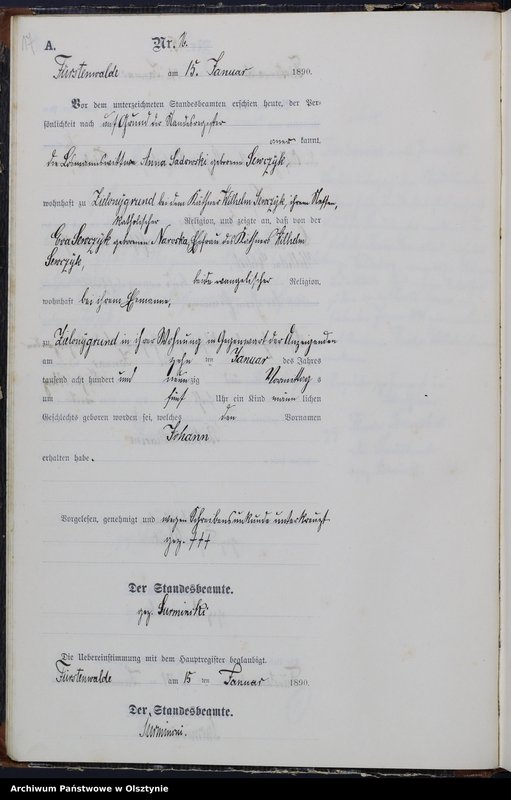 A. Nr. 16.
Fürstenwalde am 15. Januar 1890.
Vor dem unterzeichneten Standesbeamten erschien heute, der Per-
sönlichkeit nach auf Grund der Standesregister
aner kannt,
die Losmannswittwe Anna Sadowski geborene Sewczyk,
wohnhaft zu Zielonygrund bei dem Käthner Wilhelm Sewczyk, ihrem Neffen,
katholischer Religion, und zeigte an, daß von der
Eva Sewczyk geborenen Naroska, Ehefrau des Käthners Wilhelm
Sewczyk,
beide evangelischer Religion,
wohnhaft bei ihrem Ehemanne,
zu Zielonygrund in ihrer Wohnung in Gegenwart der Anzeigenden
am zehn ten Januar des Jahres
tausend acht hundert und neun zig Vormittag s
um fünf Uhr ein Kind männ lichen
Geschlechts geboren worden sei, welches den Vornamen
Johann
erhalten habe.
Vorgelesen, genehmigt und wegen Schreibensunkunde unterkreuzt
gez. +++
Der Standesbeamte.
gez. Surminski
Die Uebereinstimmung mit dem Hauptregister beglaubigt.
Fürstenwalde am 15 ten Januar 1890.
Der Standesbeamte.
Archiwum Państwowe w Olsztynie